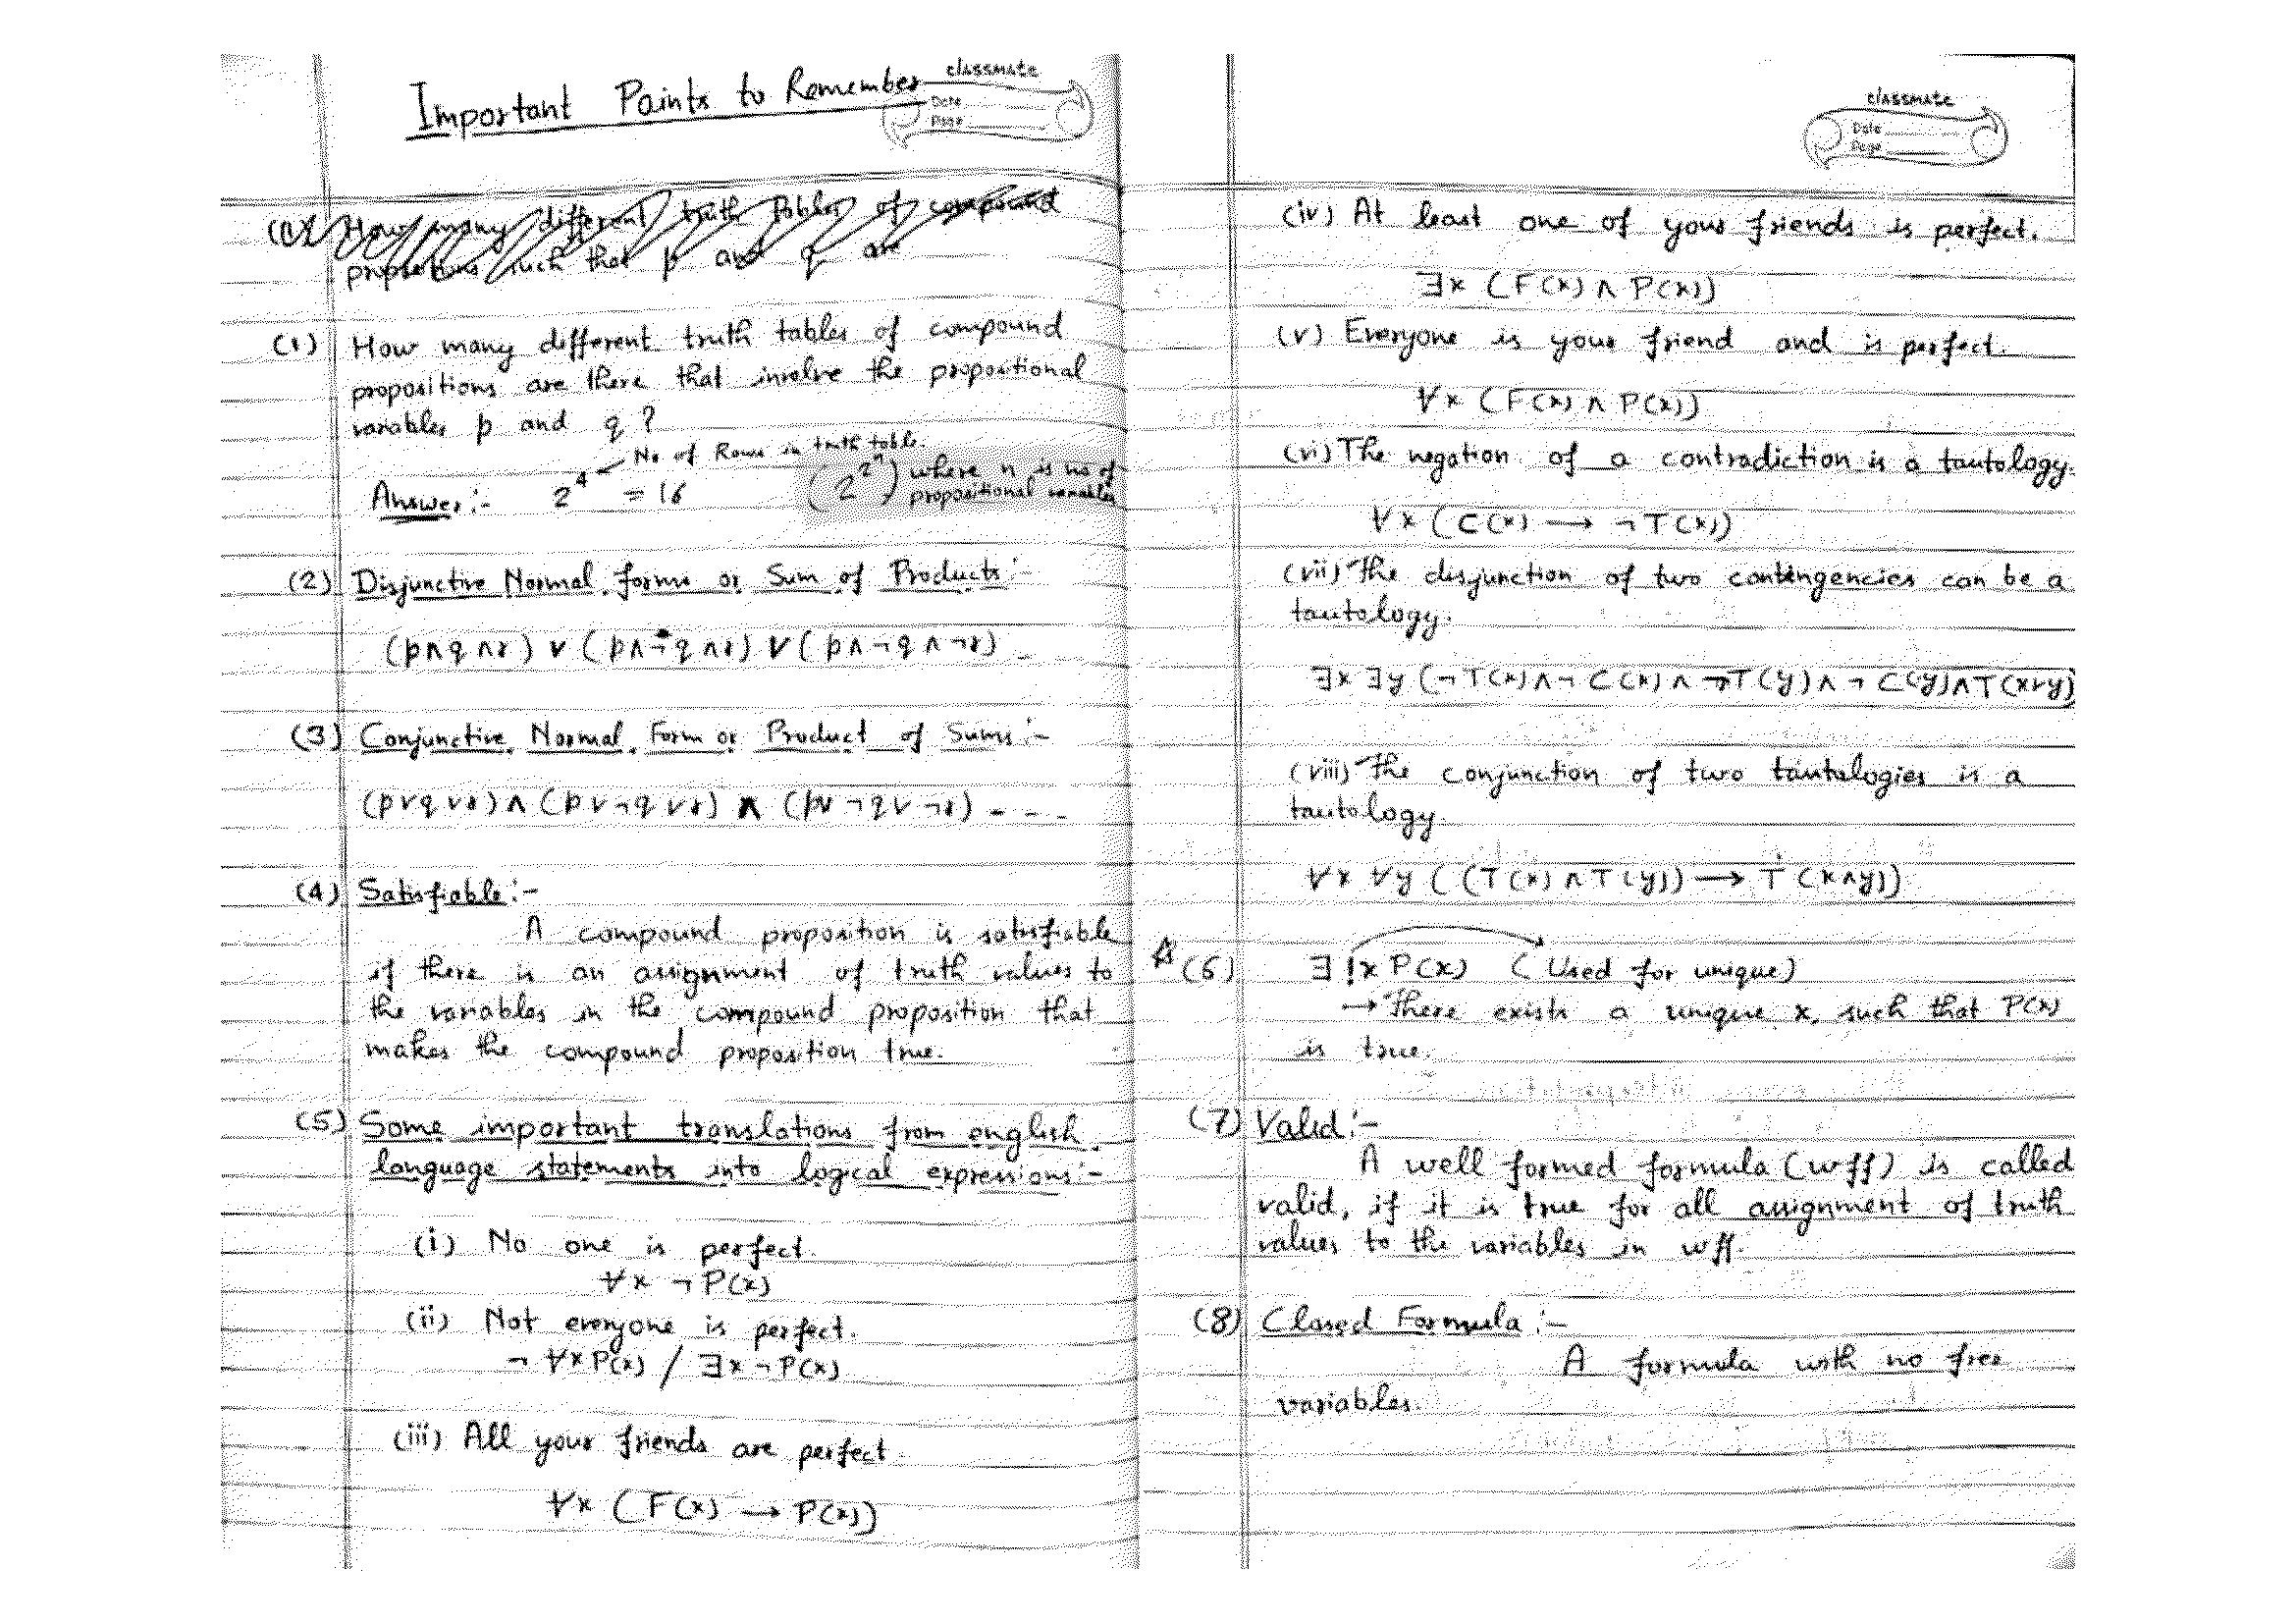 Important Points to Remember
classmate
Date
Page
(1) How many different truth tables of compound
propositions such that p and q are
(1) How many different truth tables of compound
propositions are there that involve the propositional
variables p and q ?
No of Rows in truth table.
Answer:- 2^4 = 16 (2^2^n) where n is no of
propositional variables
(2) Disjunctive Normal forms or Sum of Products:-
(p∧q∧r) ∨ (p∧¬q∧r) ∨ (p∧¬q∧¬r) _
(3) Conjunctive Normal Form or Product of Sums:-
(p∨q∨r) ∧ (p∨¬q∨r) ∧ (p∨¬q∨¬r) - - -
(4) Satisfiable:-
A compound proposition is satisfiable
if there is an assignment of truth values to
the variables in the compound proposition that
makes the compound proposition true.
(5) Some important translations from english
language statements into logical expressions:-
(i) No one is perfect.
∀x ¬P(x)
(ii) Not everyone is perfect.
¬∀x P(x) / ∃x ¬P(x)
(iii) All your friends are perfect.
∀x (F(x) → P(x))
classmate
Date
Page
(iv) At least one of your friends is perfect.
∃x (F(x) ∧ P(x))
(v) Everyone is your friend and is perfect.
∀x (F(x) ∧ P(x))
(vi) The negation of a contradiction is a tautology.
∀x (C(x) → ¬T(x))
(vii) The disjunction of two contingencies can be a
tautology.
∃x ∃y (¬T(x) ∧ ¬C(x) ∧ ¬T(y) ∧ ¬C(y) ∧ T(x∨y)
(viii) The conjunction of two tautologies is a
tautology.
∀x ∀y ((T(x) ∧ T(y)) → T(x∧y))
☆(6) ∃!x P(x) (Used for unique)
→ There exists a unique x, such that P(x)
is true.
(7) Valid:-
A well formed formula (wff) is called
valid, if it is true for all assignment of truth
values to the variables in wff.
(8) Closed Formula:-
A formula with no free
variables.